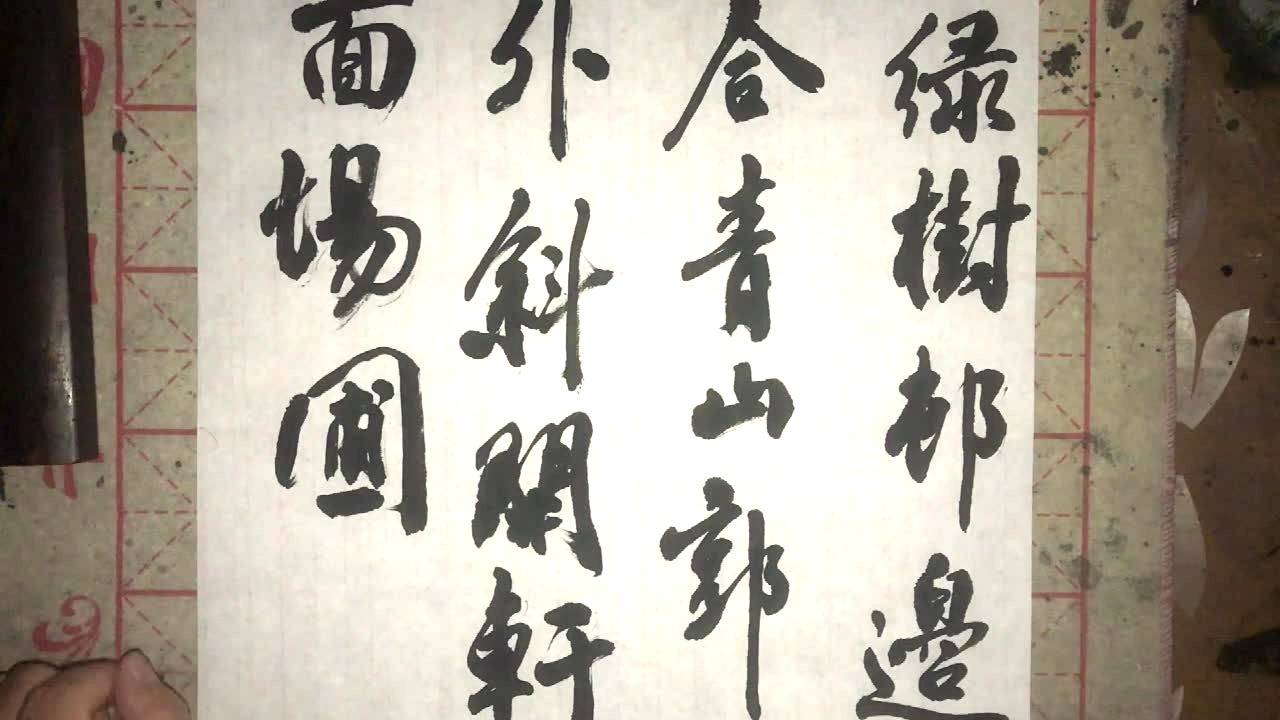 绿樹邨邊
合青山郭
外斜開軒
面場圃